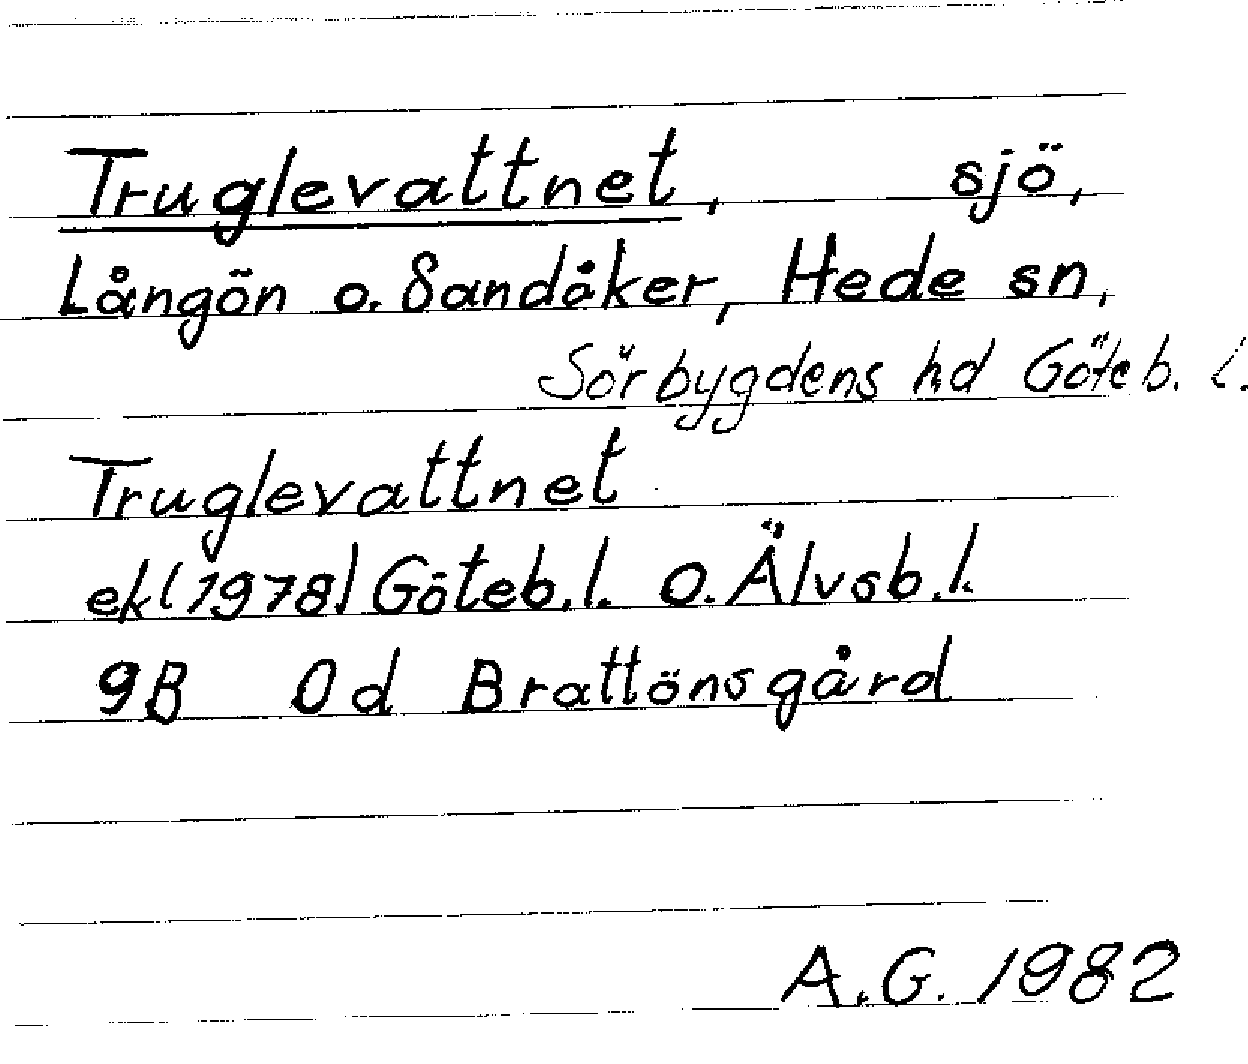 Truglevattnet, sjö,
Långön o. Sandåker, Hede sn,
Sörbygdens hd Göteb. l.
Truglevattnet
ek(1978) Göteb.l. o. Älvsb.l.
9B Od Brattönsgård
A.G. 1982